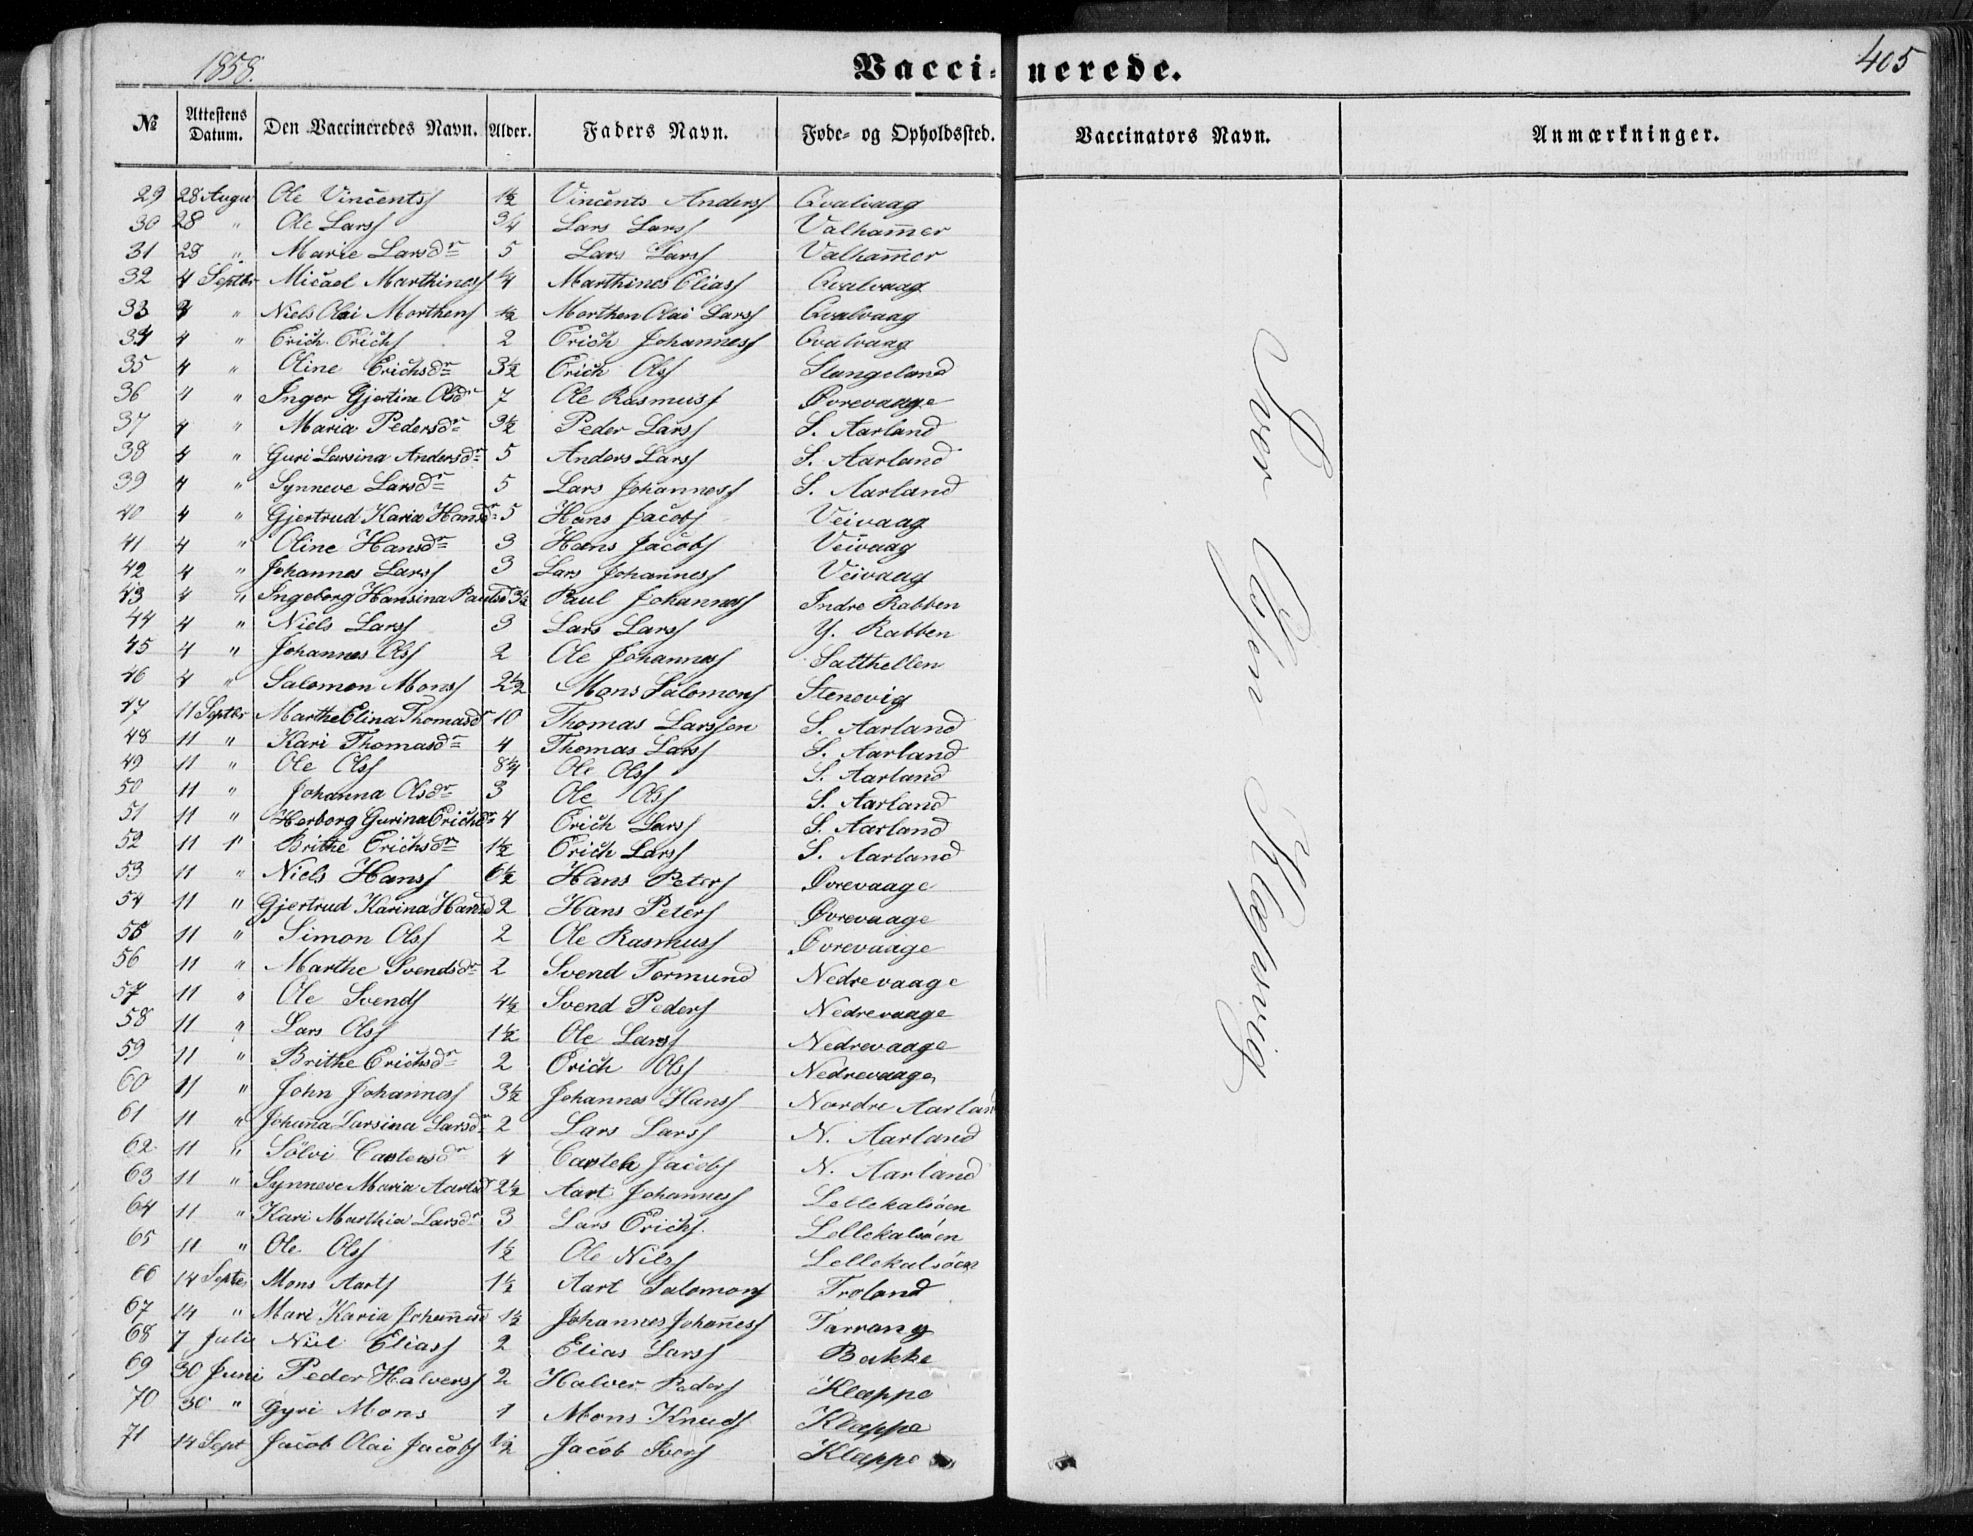 1858.
Vaccinerede.
405
№ | Attestens Datum. | Den Vaccineredes Navn. | Alder. | Faders Navn. | Føde- og Opholdssted. | Vaccinators Navn. | Anmærkninger.
29 28 Augu Ole Vincents 1½ Vincents Anders Qvalvaag
30 28 " Ole Lars ¾ Lars Lars Valham̄er
31 28 " Marie Larsdr 5 Lars Lars Valham̄er
32 4 Septbr Micael Marthines ¼ Marthines Elias Qvalvaag
33 4 " Niels Olai Morthens ½ Morthen Olai Lars Qvalvaag
34 4 " Erich Erichs 2 Erich Johannes Qvalvaag
35 4 " Oline Erichsdr 3½ Erich Ols Slangeland
36 " " Inger Gjertine Olsdr 7 Ole Rasmus Øvrevaage
37 4 " Maria Pedersdr 3½ Peder Lars S. Aarland
38 4 " Guri Larsina Andersdr 5 Anders Lars S. Aarland
39 4 " Synneve Larsdr 5 Lars Johannes S. Aarland
40 4 " Gjertrud Karia Hansdr 5 Hans Jacobs Veivaag
41 4 " Oline Hansdr 3 Hans Jacobs Veivaag
42 4 " Johannes Lars 3 Lars Johannes Veivaag
43 4 " Ingeborg Hansina Paulsd 3½ Paul Johannes Indre Rabben
44 4 " Niels Lars 3 Lars Lars Y. Rabben
45 4 " Johannes Ols 2 Ole Johannes Satthellen
46 4 " Salomon Mons 2½ Mons Salomons Stenevig
47 11 Septbr Marthe Elina Thomasdr 10 Thomas Larsson S. Aarland
48 11 " Kari Thomasdr 4 Thomas Lars S. Aarland
49 11 " Ole Ols 8¼ Ole Ols S. Aarland
50 11 " Johanna Olsdr 3 Ole Ols S. Aarland
51 11 " Herborg Gurina Erichsdr 4 Erich Lars S. Aarland
52 11 " Brithe Erichsdr 1½ Erich Lars S. Aarland
53 11 " Niels Hans 6½ Hans Peters Øvrevaage
54 11 " Gjertrud Karina Hansd 2 Hans Peters Øvrevaage
55 11 " Simon Ols 2 Ole Rasmus Øvrevaage
56 11 " Marthe Svendsdr 2 Svend Tormund Nedrevaage
57 11 " Ole Svends 4½ Svend Peders Nedrevaage
58 11 " Lars Ols 1½ Ole Lars Nedrevaage
59 11 " Brithe Erichsdr 2 Erich Ols Nedrevaage
60 11 " John Johannes 3½ Johannes Hans Nordre Aarlan
61 11 " Johan̄a Larsina Larsdr 2 Lars Lars N. Aarland
62 11 " Sölvi Castensdr 4 Casten Jacobs N. Aarland
63 11 " Synneve Maria Aartsd 2½ Aart Johannes Lellekalsøen
64 11 " Kari Marthia Larsdr 3 Lars Erichs Lellekalsøen
65 11 " Ole Ols 1½ Ole Nils Lellekalsøen
66 14 Septe Mons Aarts 1½ Aart Salomons Troland
67 14 " Mari Karia Johan̄esd 1½ Johannes Johan̄es Tarrang
68 7 Juli Niel Elias 2 Elias Lars Bakke
69 30 Juni Peder Halvers 2 Halver Peders Klappe
70 30 " Gyri Mons 1 Mons Knuds Klappe
71 14 Sept Jacob Olai Jacobs 1½ Jacob Ivers Klappe
Iver Klepsvig